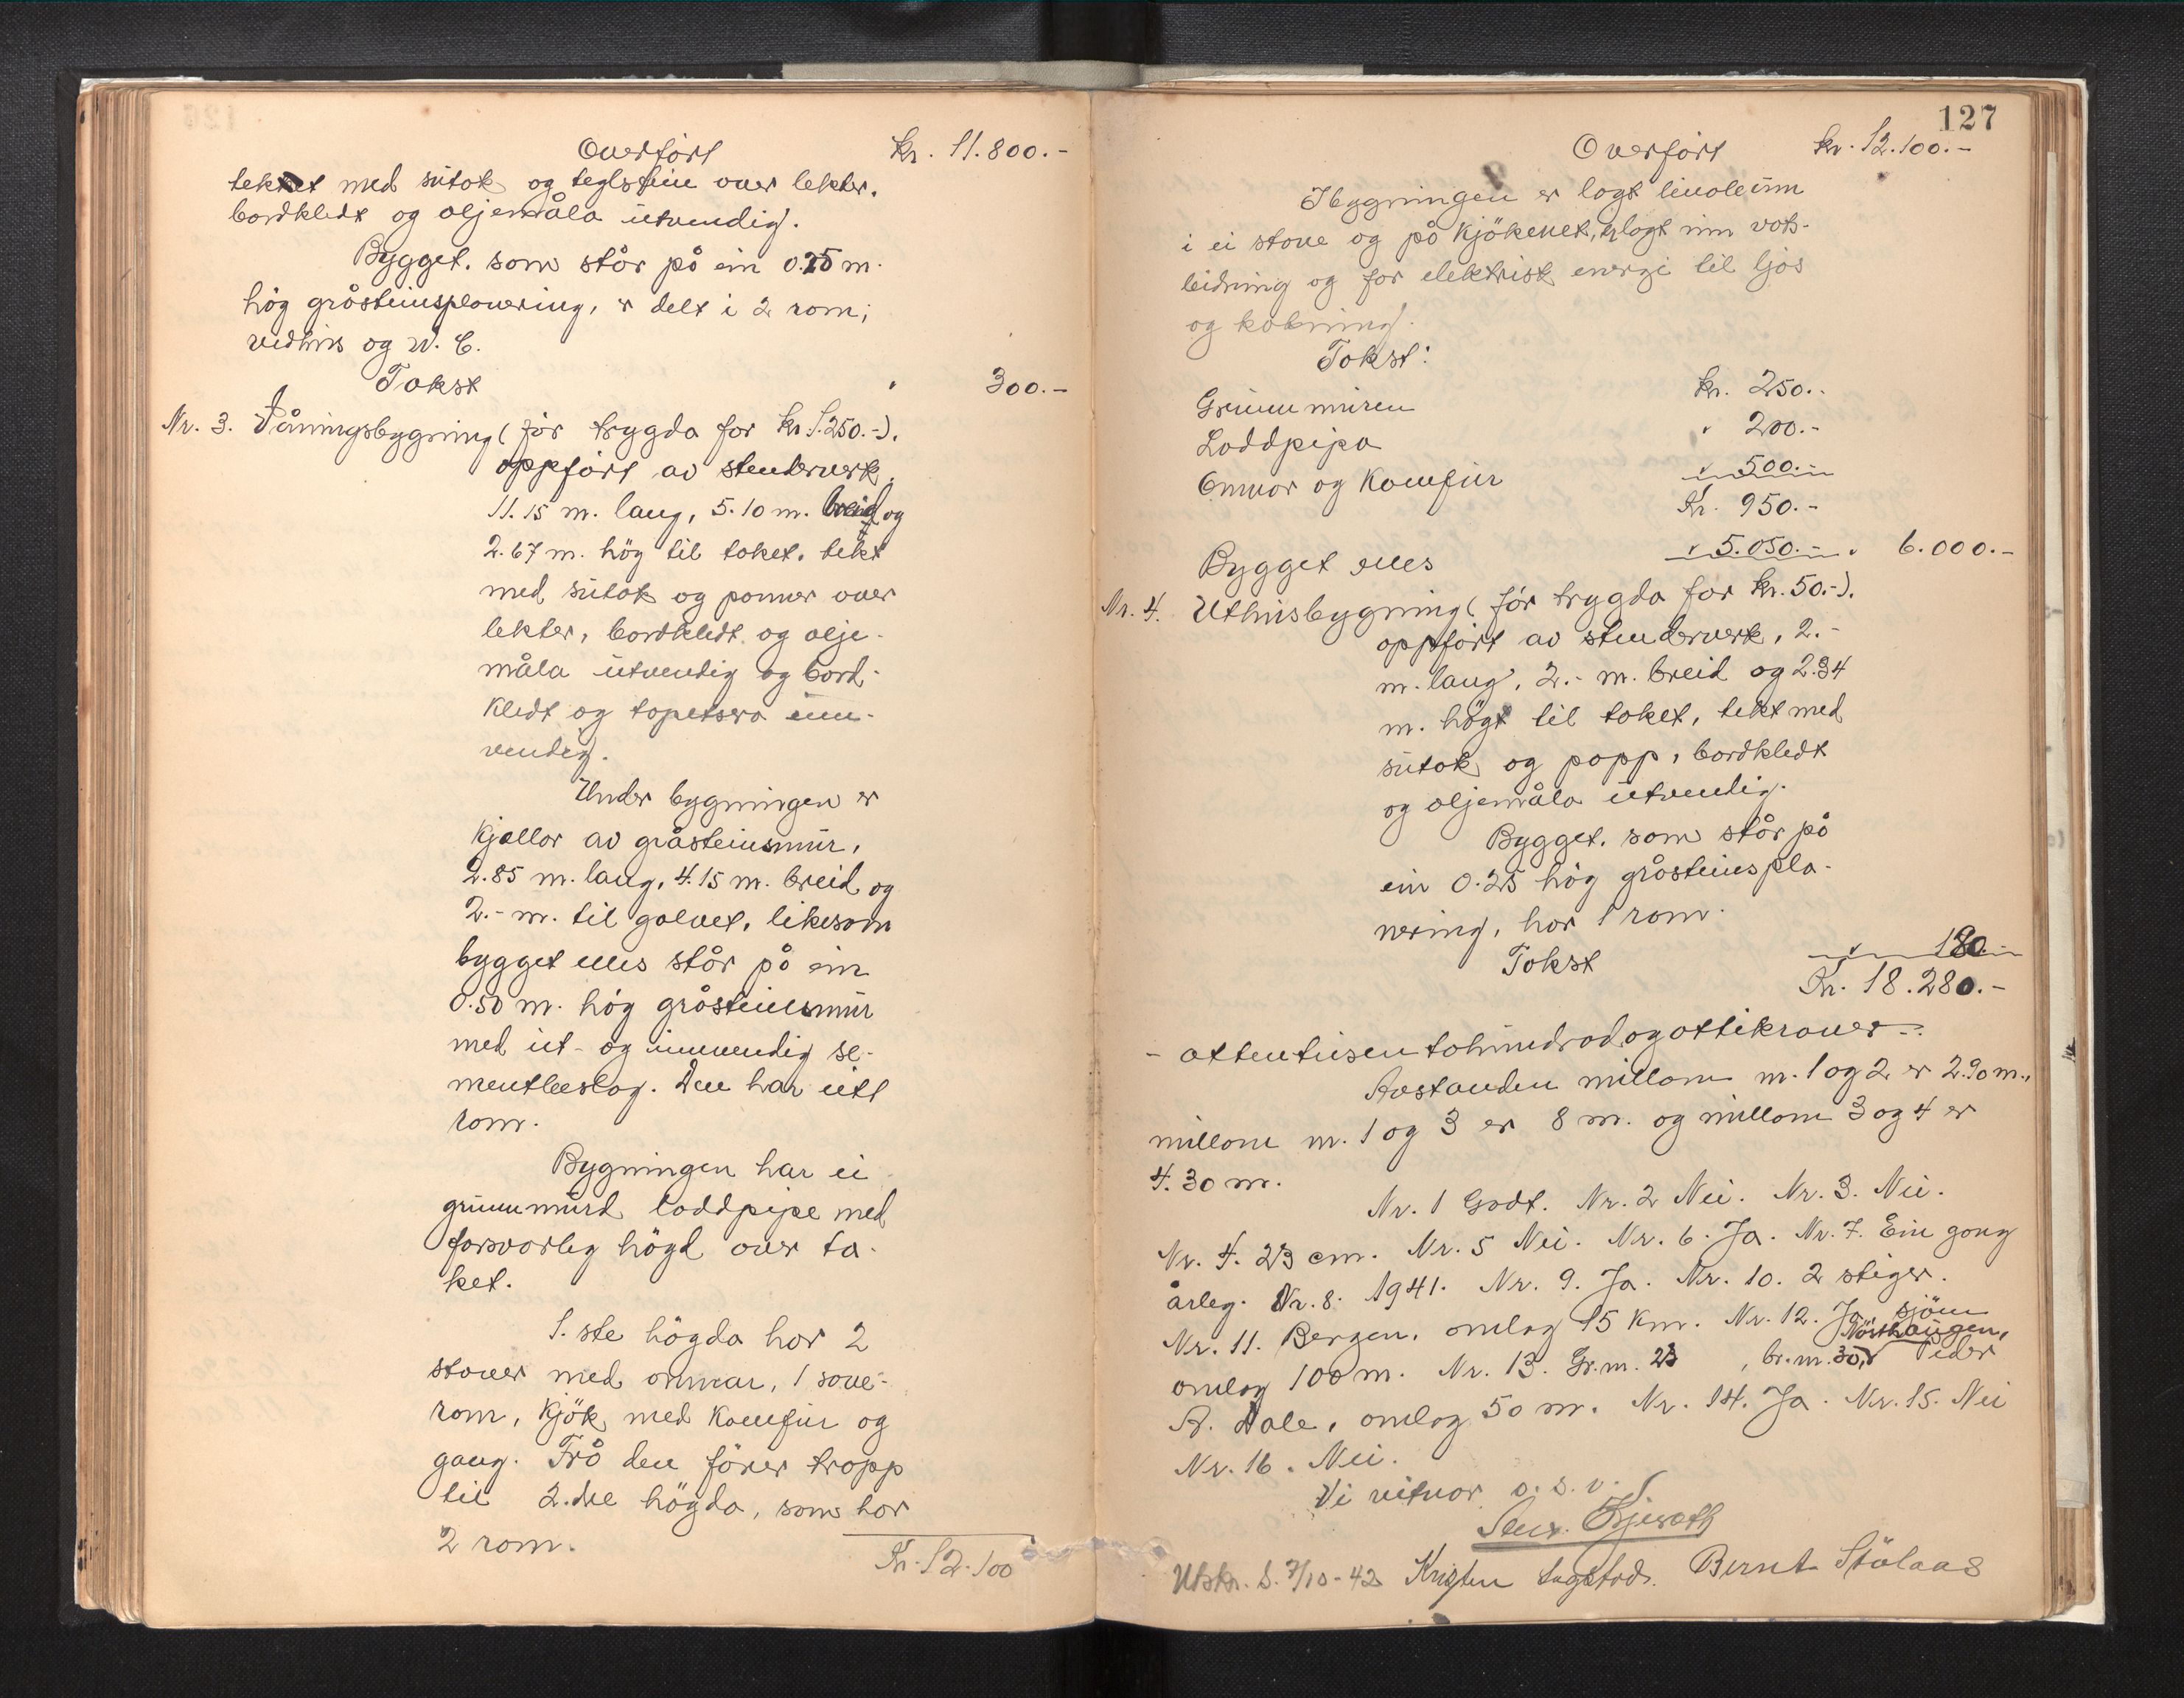 Overført kr. 11.800.-
tekket med sutak og teglstein over lekter.
bordkledt og oljemåla utvendig.
Bygget. som står på ein 0.25 m.
høg gråsteinsplanering, er delt i 2 rom;
vedhus og W. C.
Takst " 300.-
Nr. 3. Våningsbygning (før trygda for kr 1.250.-).
oppført av stenderverk,
11.15 m. lang, 5.10 m. breid og
2.67 m. høg til taket. tekt
med sutak og panner over
lekter, bordkledt og olje-
måla utvendig og bord-
kledt og tapetsera inn-
vendig.
Under bygningen er
kjellar av gråsteinsmur,
2.85 m. lang, 4.15 m. breid og
2.- m. til golvet, likesom
bygget elles står på ein
0.50 m. høg gråsteinsmur
med ut- og innvendig se-
mentbeslag. Den har eitt
rom.
Bygningen har ei
grunnmurd loddpipe med
forsvarleg høgd over ta-
ket.
1. ste høgda har 2
stover med omnar, 1 sove-
rom, kjøk med komfur og
gang. Frå den fører tropp
til 2.dre høgda, som har
2 rom.
Kr. 12.100
127
Overført kr. 12.100.-
I bygningen er lagt linoleum
i ei stove og på kjøkenet, er lagt inn vats-
leidning og for elektrisk energi til ljos
og kokning.
Takst:
Grunnmuren kr. 250.-
Loddpipa " 200.-
Omnar og komfur " 500.-
Kr. 950.-
Bygget elles " 5.050.- " 6.000.-
Nr. 4. Uthusbygning (før trygda for kr. 50.-).
oppført av stenderverk, 2.-
m. lang, 2.- m. breid og 2.34
m. høgt til taket, tekt med
sutak og papp, bordkledt
og oljemåla utvendig.
Bygget. som står på
ein 0.25 høg gråsteinspla-
nering, har 1 rom.
Takst " 180.-
Kr. 18.280.-
- attentusentohundradogåttikroner -.
Avstanden millom nr. 1 og 2 er 2.90 m.,
millom nr. 1 og 3 er 8 m. og millom 3 og 4 er
4.30 m.
Nr. 1 Godt. Nr. 2 Nei. Nr. 3. Nei.
Nr. 4. 23 cm. Nr. 5 Nei. Nr. 6. Ja. Nr. 7. Ein gong
årleg. Nr. 8. 1941. Nr. 9. Ja. Nr. 10. 2 stiger.
Nr. 11. Bergen, omlag 15 km. Nr. 12. Ja, sjøen
omlag 100 m. Nr. 13. Gr.nr. 23, br.nr. 30, Peder
A. Dale, omlag 50 m. Nr. 14. Ja. Nr. 15. Nei
Nr. 16. Nei.
Vi vitnar o. s. v.
Utskr. d. 7/10-42 Kristen Bernt Stølaas